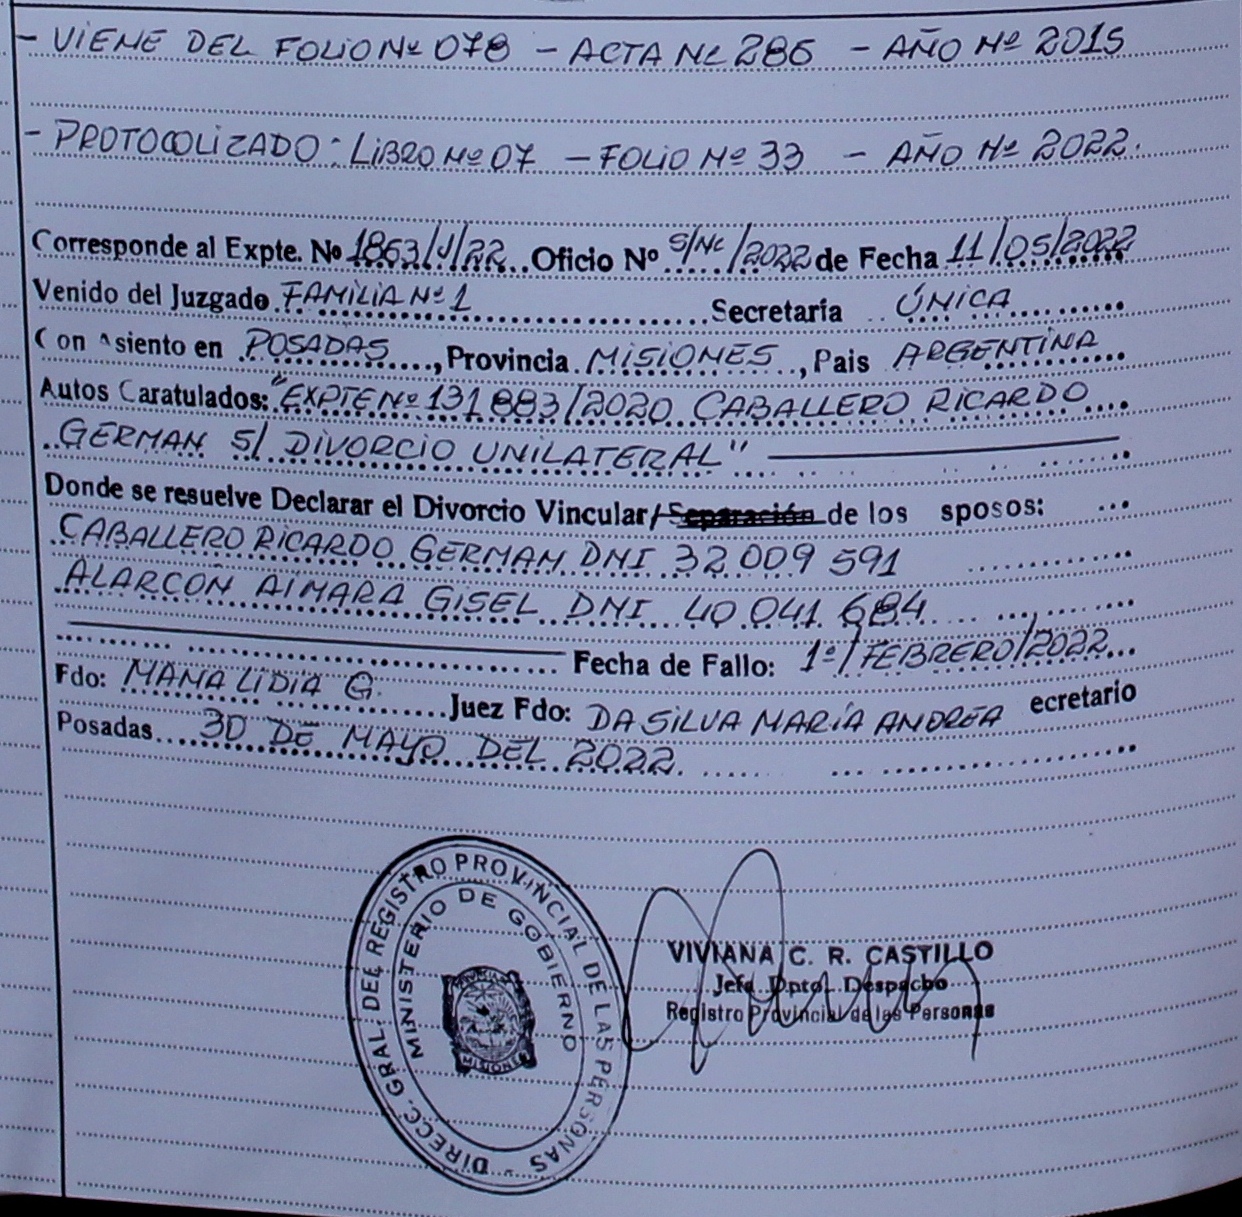 - VIENE DEL FOLIO Nº 078 - ACTA Nº 286 - AÑO Nº 2015
- PROTOCOLIZADO: LIBRO Nº 07 - FOLIO Nº 33 - AÑO Nº 2022.
Corresponde al Expte. Nº 1863/J/22 Oficio Nº S/Nº/2022 de Fecha 11/05/2022
Venido del Juzgado FAMILIA Nº 1 Secretaría ÚNICA
Con Asiento en POSADAS, Provincia MISIONES, Pais ARGENTINA
Autos Caratulados: "EXPTE Nº 131883/2020 CABALLERO RICARDO
GERMAN S/ DIVORCIO UNILATERAL"
Donde se resuelve Declarar el Divorcio Vincular/Separación de los sposos:
CABALLERO RICARDO GERMAN DNI 32 009 591
ALARCON AIMARA GISEL DNI 40 041 684
Fecha de Fallo: 1º/FEBRERO/2022
Fdo: LIDIA G. Juez Fdo: DA SILVA MARÍA ANDREA ecretario
Posadas 30 DE MAYO DEL 2022
DIRECC. GRAL. DEL REGISTRO PROVINCIAL DE LAS PERSONAS
MINISTERIO DE GOBIERNO
MISIONES
VIVIANA C. R. CASTILLO
Jefa Dpto. Despacho
Registro Provincial de las Personas